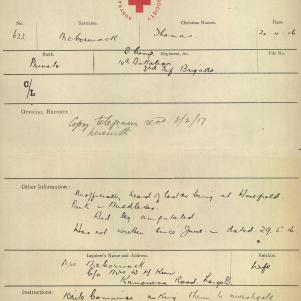 SOCIETY AUSTRA
No. Surname. Christian Names. Date.
623 McCormack Thomas. 20.11.16
Rank. Regiment, &c. File No.
Private D Comp.
10th Battalion
3rd Inf Brigade
C/L
OFFICIAL REPORTS:
Copy telegram recd 8/2/17
herewith
Other Information:
Unofficially heard of last as being at Harefield
Park - Middlesex.
Had leg amputated
Has not written since June - dated 29.5.16.
Inquirer's Name and Address. Relation.
McCormack Wife
C/o Mrs W H
Road, Largs B.
Instructions: Write asking them to investigate